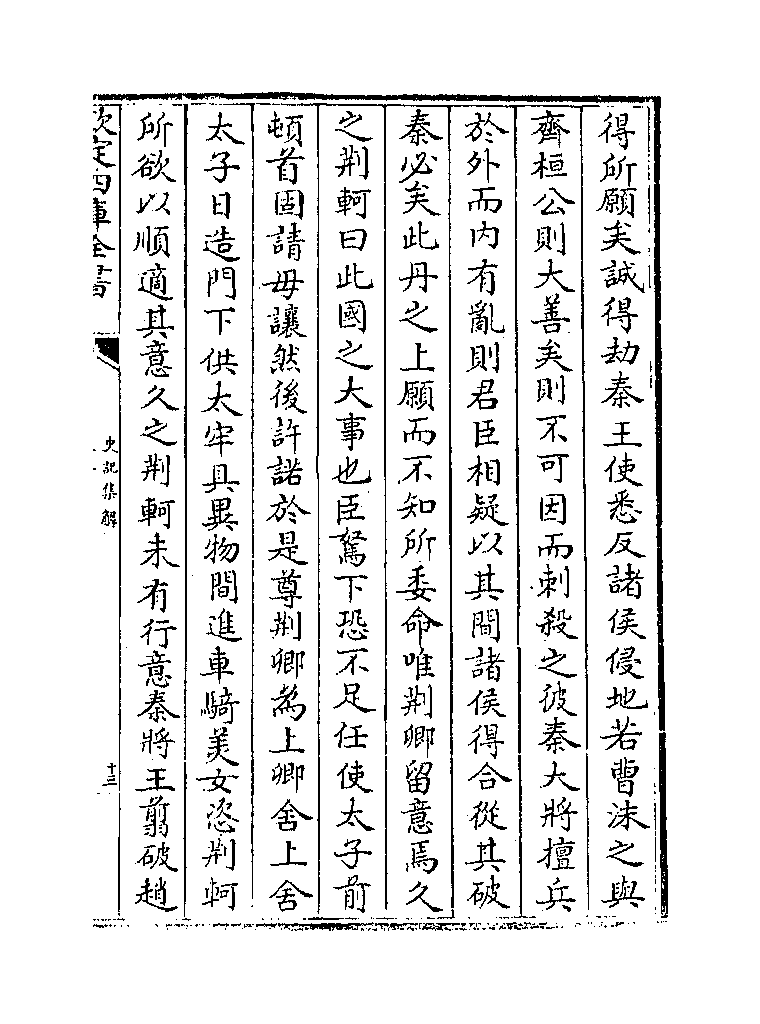 得所願矣誠得劫秦王使悉反諸侯侵地若曹沫之與
齊桓公則大善矣則不可因而刺殺之彼秦大將擅兵
於外而内有亂則君臣相疑以其間諸侯得合從其破
秦必矣此丹之上願而不知所委命唯荆卿留意焉久
之荆軻曰此國之大事也臣駑下恐不足任使太子前
頓首固請毋讓然後許諾於是尊荆卿為上卿舍上舍
太子日造門下供太牢具異物間進車騎美女恣荆軻
所欲以順適其意久之荆軻未有行意秦將王翦破趙
欽定四庫全書
史記集解
十三